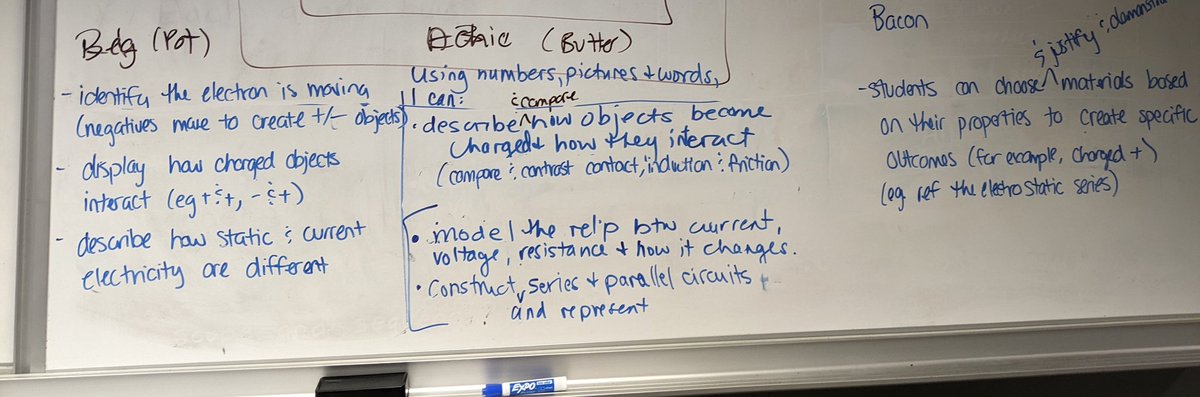 Bdg (Pot)
- identify the electron is moving
(negatives move to create +/- objects)
- display how charged objects
interact (eg + & +, - & +)
- describe how static & current
electricity are different
(Butter)
Using numbers, pictures + words,
I can:
& compare
• describe ^ how objects become
charged + how they interact
(compare & contrast contact, induction & friction)
• model the rel'p btw current,
voltage, resistance + how it changes.
• Construct, series + parallel circuits
and represent
Bacon
& justify &
- students can choose ^ materials based
on their properties to create specific
outcomes (for example, charged +)
(eg ref the electrostatic series)
EXPO